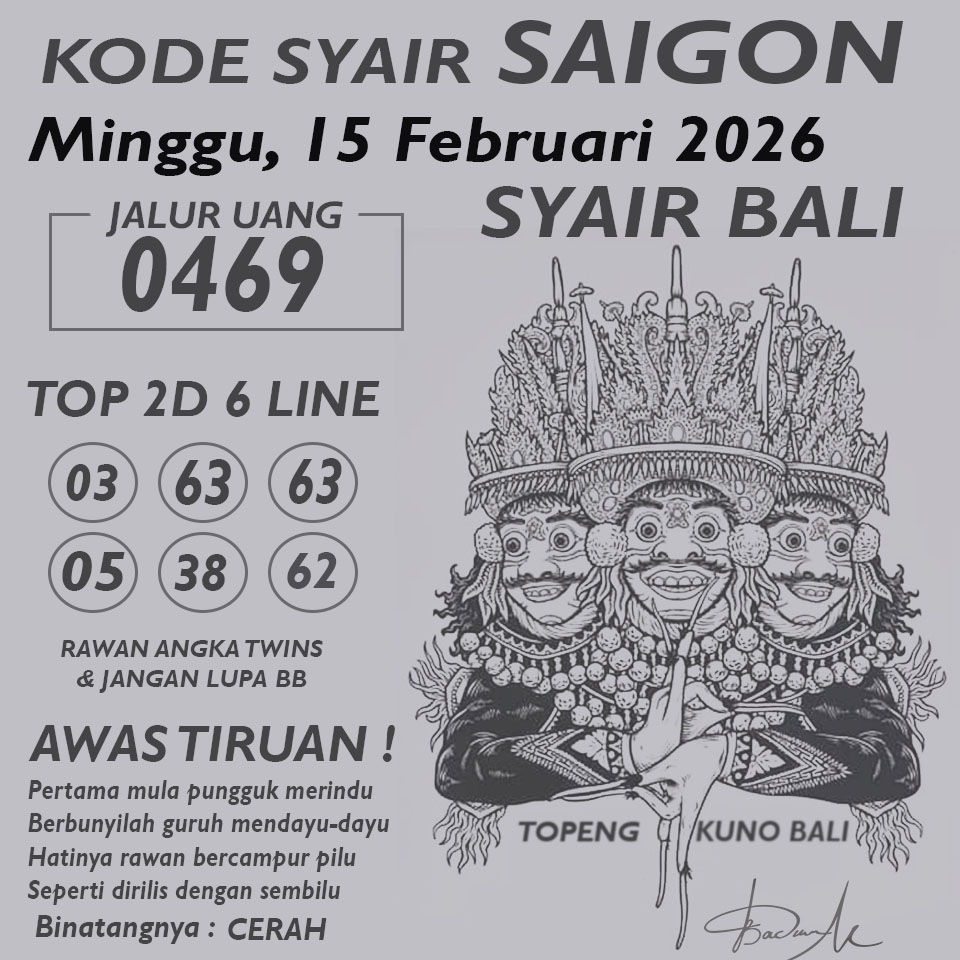 KODE SYAIR SAIGON
Minggu, 15 Februari 2026
SYAIR BALI
JALUR UANG
0469
TOP 2D 6 LINE
03 63 63
05 38 62
RAWAN ANGKA TWINS
& JANGAN LUPA BB
AWAS TIRUAN !
Pertama mula pungguk merindu
Berbunyilah guruh mendayu-dayu
Hatinya rawan bercampur pilu
Seperti dirilis dengan sembilu
Binatangnya : CERAH
TOPENG KUNO BALI